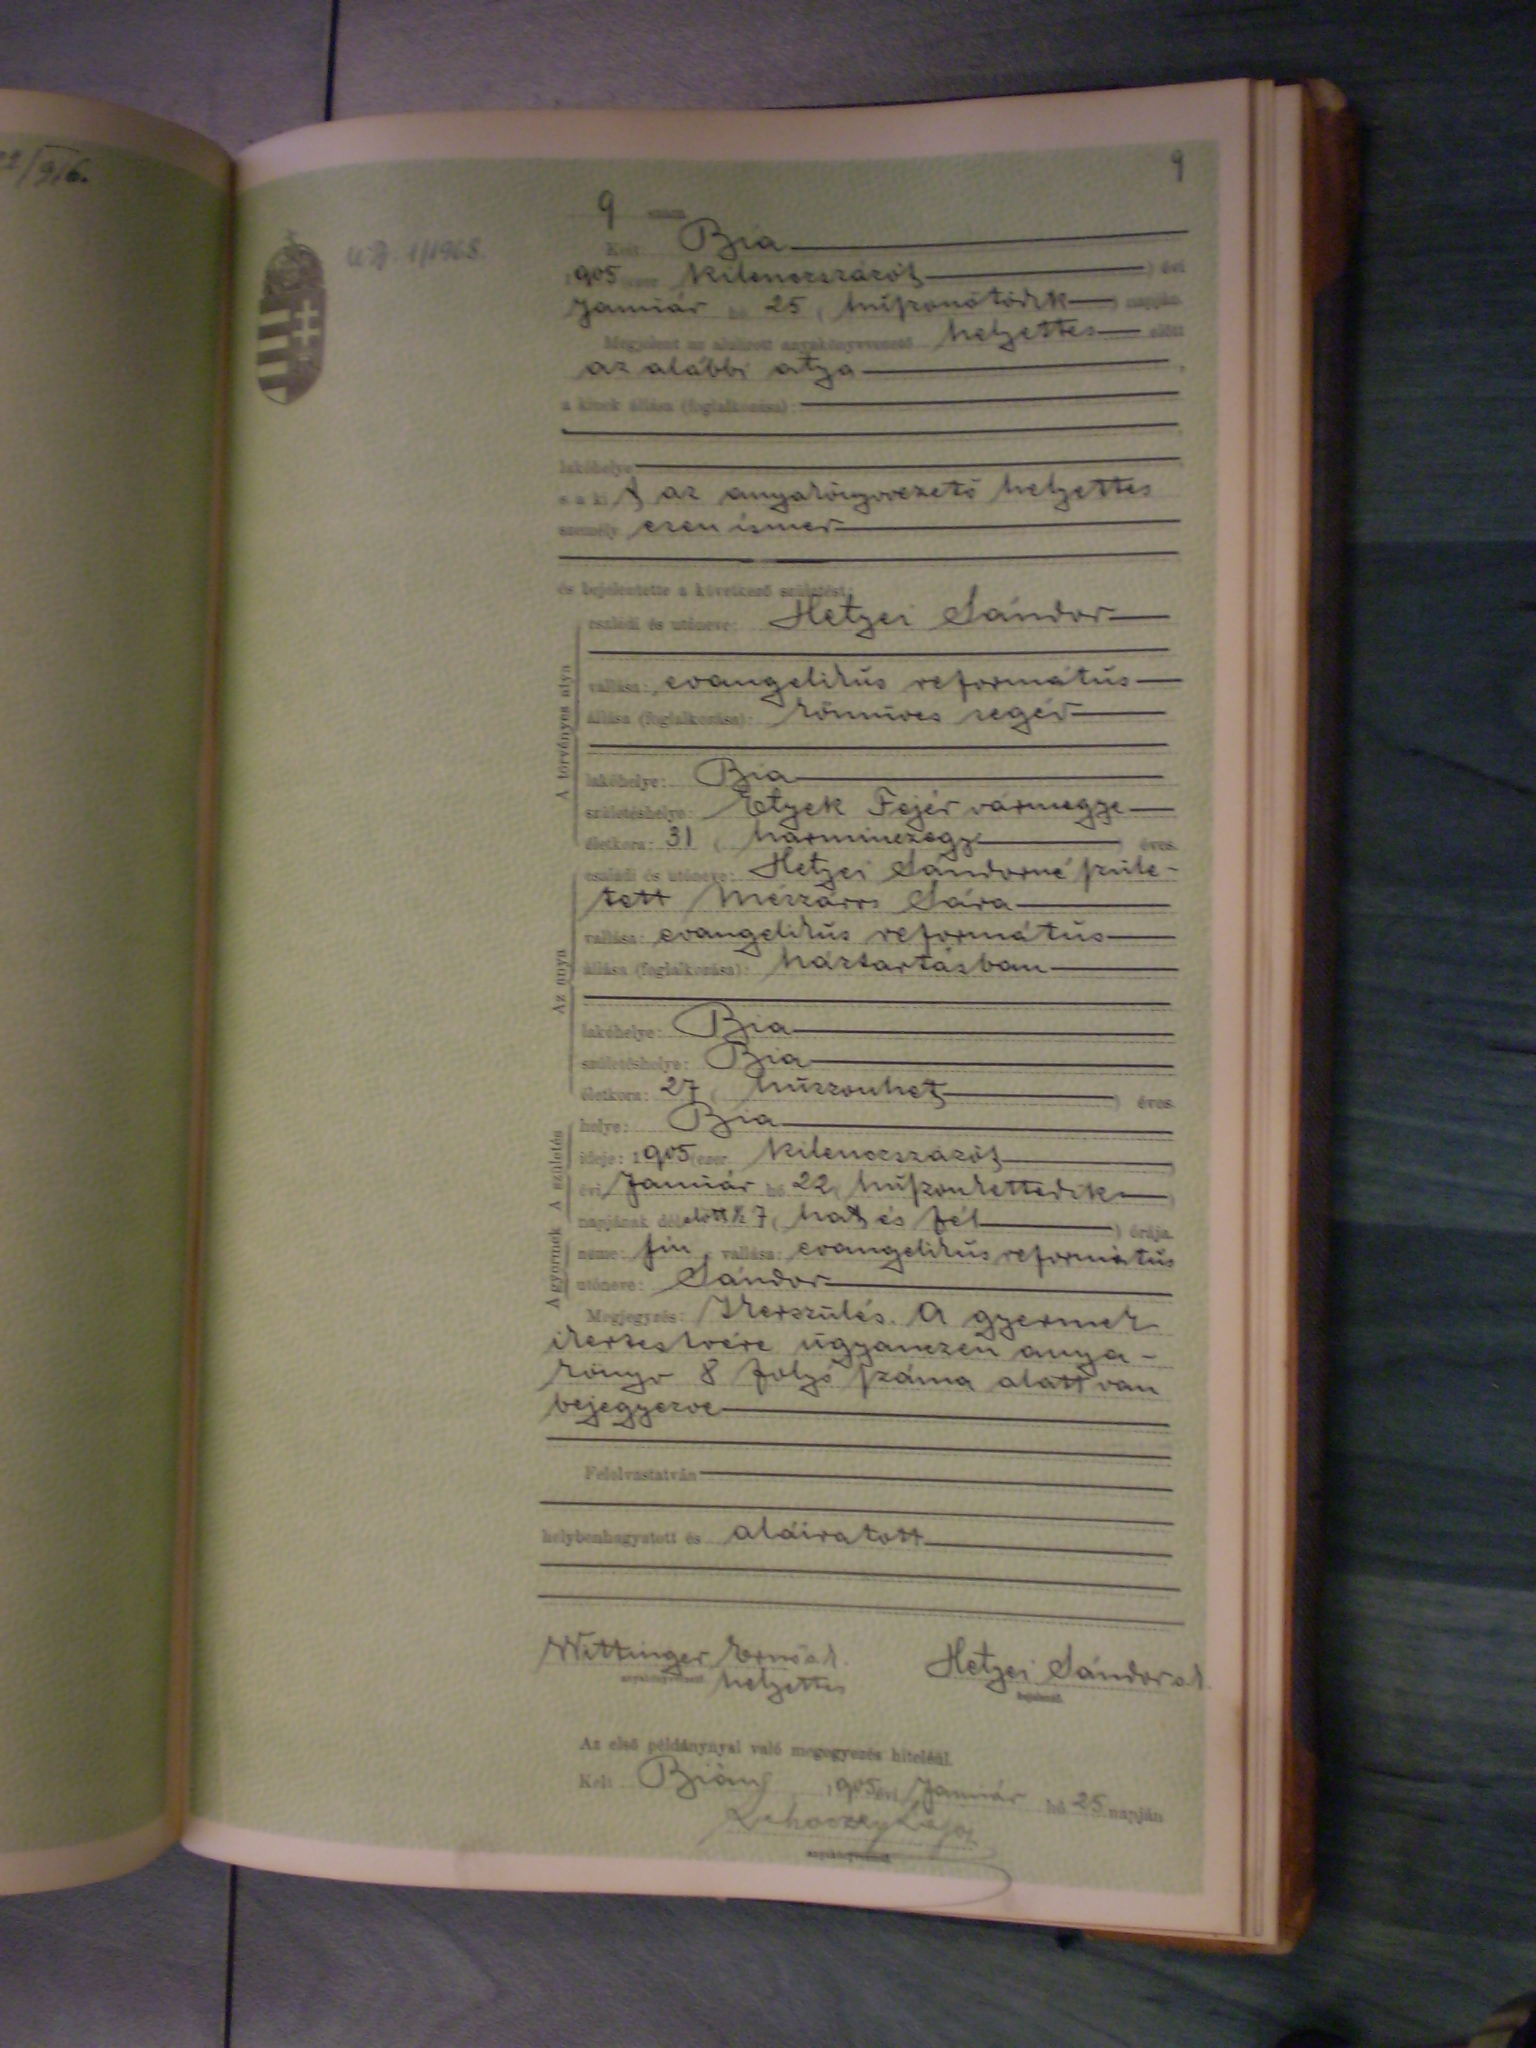 22/916.
9
9 szám
U.B. 1/1968.
Kelt Bia
1905 (ezer kilenczszázöt) évi
Január hó 25 (huszonötödik) napján.
Megjelent az alulírott anyakönyvvezető helyettes előtt
az alábbi atya,
a kinek állása (foglalkozása):
lakóhelye
s a ki t az anyakönyvvezető helyettes
személy esen ismer
és bejelentette a következő születést:
A törvényes atya
családi és utóneve: Hetyei Sándor
vallása: evangelikus református
állása (foglalkozása): kőmüves segéd
lakóhelye: Bia
születéshelye: Etyek Fejér vármegye
életkora: 31 (harminczegy) éves.
Az anya
családi és utóneve: Hetyei Sándorné szüle-
tett Mészáros Sára
vallása: evangelikus református
állása (foglalkozása): háztartásban
lakóhelye: Bia
születéshelye: Bia
életkora: 27 (huszonhet) éves.
A születés
helye: Bia
ideje: 1905 (ezer kilenczszázöt)
évi Január hó 22 (huszonkettedik)
napjának délelőtt ½ 7 (hat és fél) órája.
A gyermek
neme: fiu vallása: evangelikus református
utóneve: Sándor
Megjegyzés: Ikerszülés. A gyermek
ikertestvére ugyanezen anya-
könyv 8 folyó száma alatt van
bejegyezve
Felolvastatván
helybenhagyatott és aláiratott
Wittinger Ernő s.k. Hetyei Sándor s.k.
anyakönyvvezető helyettes bejelentő.
Az első példánynyal való megegyezés hiteléül.
Kelt Bián, 1905 évi Január hó 25 napján
Lehoczky Lajos
anyakönyvvezető